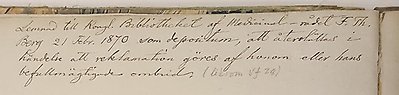 Lemnad till Kongl. Bibliotheket af Medicinal-rådet F. Th.
Berg 21 Febr. 1870 som deposition, att återställas i
händelse att reklamation göres af honom eller hans
befullmägtigade ombud.